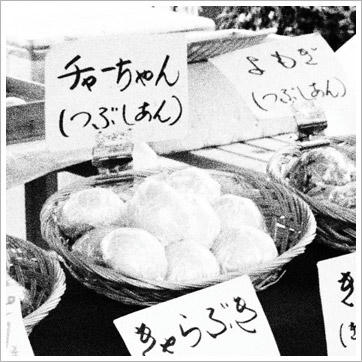 チャーちゃん
(つぶしあん)
よもぎ
(つぶしあん)
きゃらぶき